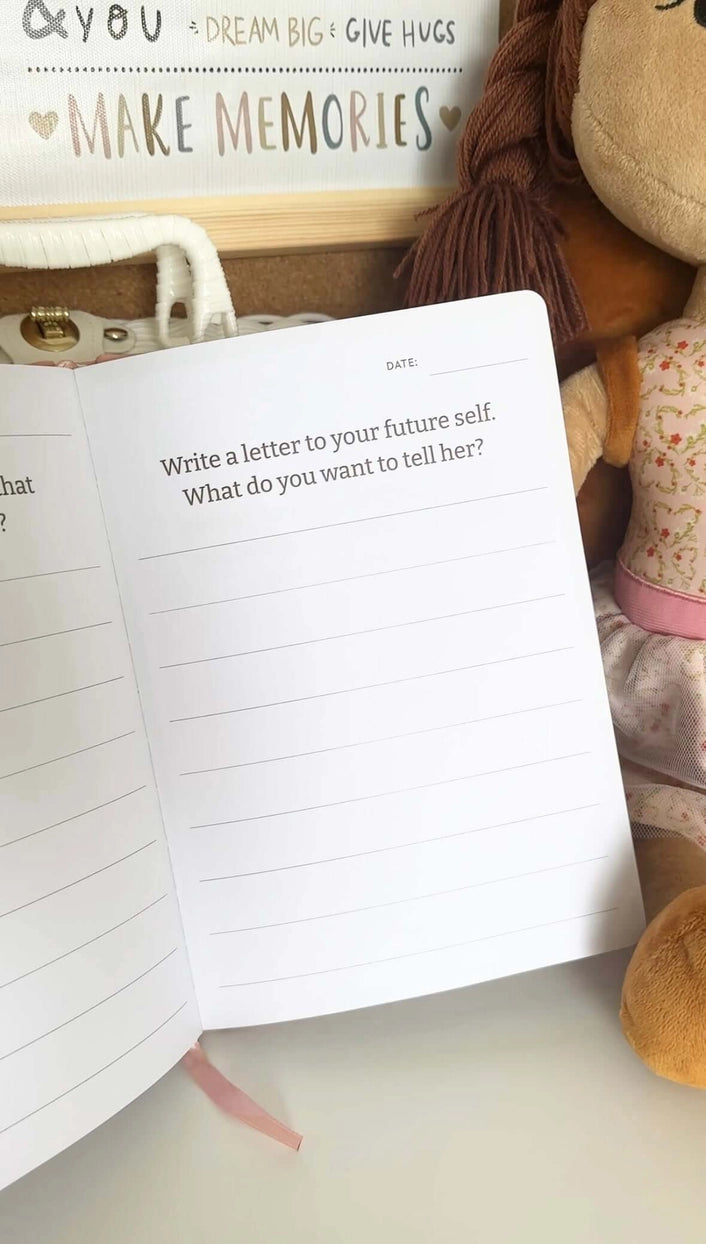 &YOU DREAM BIG GIVE HUGS
MAKE MEMORIES
hat
?
DATE:
Write a letter to your future self.
What do you want to tell her?